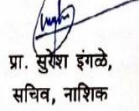 प्रा. सुरेश इंगळे,
सचिव, नाशिक